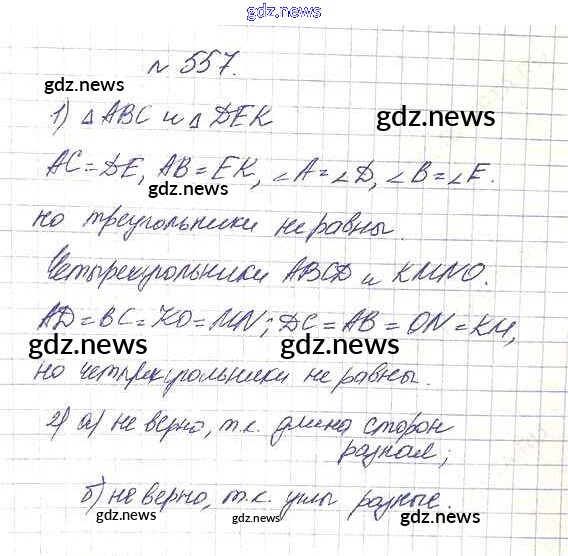 gdz.netz.ru
№ 557.
gdz.netz.ru
1) △ABC и △DEK
gdz.netz.ru
AC=DE, AB=EK, ∠A=∠D, ∠B=∠E.
но треугольники не равны.
Четырехугольники ABCD и KMNO.
AD=BC=KO=MN; DC=AB=ON=KM,
gdz.netz.ru gdz.netz.ru
но четырехугольники не равны.
2) а) не верно, т.к. длина сторон
разная;
б) не верно, т.к. углы разные.
gdz.netz.ru gdz.netz.ru gdz.netz.ru
gdz.netz.ru